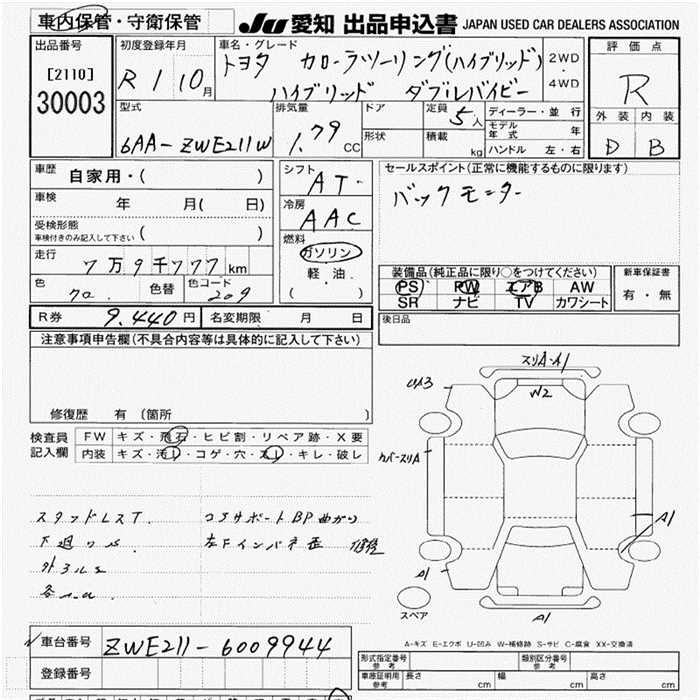 車内保管・守衛保管
JU 愛知 出品申込書 JAPAN USED CAR DEALERS ASSOCIATION
出品番号
[2110]
30003
初度登録年月
R 1 10月
車名・グレード
トヨタ カローラツーリング(ハイブリッド)
ハイブリッド ダブルバイビー
2WD・4WD
評価点
R
外装 内装
D B
型式
6AA-ZWE211W
排気量
1.79 CC
ドア
形状
定員 5人
積載 kg
ディーラー・並行
モデル年式 年
ハンドル 左・右
車歴 自家用・( )
車検 年 月( 日)
受検形態
車検付きのみ記入して下さい ( )
走行 7万9千777km
色 色替 色コード
209
シフト
AT
冷房
AAC
燃料
ガソリン
軽油
( )
セールスポイント(正常に機能するものに限ります)
バックモニター
装備品(純正品に限り○をつけてください)
PS PW エアB AW
SR ナビ TV カワシート
新車保証書
有・無
後日品
R券 9.440円 名変期限 月 日
注意事項申告欄(不具合内容等は具体的に記入して下さい)
修復歴 有(箇所 )
検査員記入欄
FW キズ・飛石・ヒビ割・リペア跡・X要
内装 キズ・汚れ・コゲ・穴・スレ・キレ・破レ
スタッドレスT.
コアサポートBP曲がり
左Fインパネ歪 修復
スリA・A1
W2
U1A3
カバースリA
A1
A1
A1
スペア
A-キズ E-エクボ U-凹み W-補修跡 S-サビ C-腐食 XX-交換済
車台番号 ZWE211-6009944
登録番号
形式指定番号 参考
類別区分番号 参考
車庫証明用 参考 長さ cm 幅 cm 高さ cm